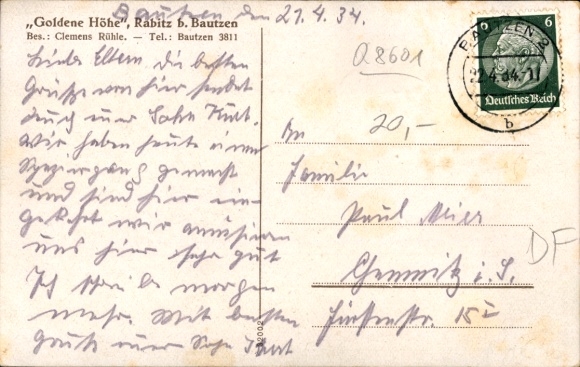 „Goldene Höhe", Rabitz b. Bautzen
Bes.: Clemens Rühle. — Tel.: Bautzen 3811
Bautzen den 21.4.34.
Liebe Eltern die besten
Grüsse von hier sendet
Euch euer Sohn Kurt.
Wir haben heute einen
Spaziergang gemacht
und sind hier ein-
gekehrt wir amüsieren
uns hier sehr gut
Ich schreibe morgen
mehr. Mit besten
Gruß euer Sohn Kurt
Q8601
20,-
BAUTZEN 2
22.4.34.
b
6
Deutsches Reich
An
Familie
Paul Meier
Chemnitz i. S.
15 I
DF
A2002